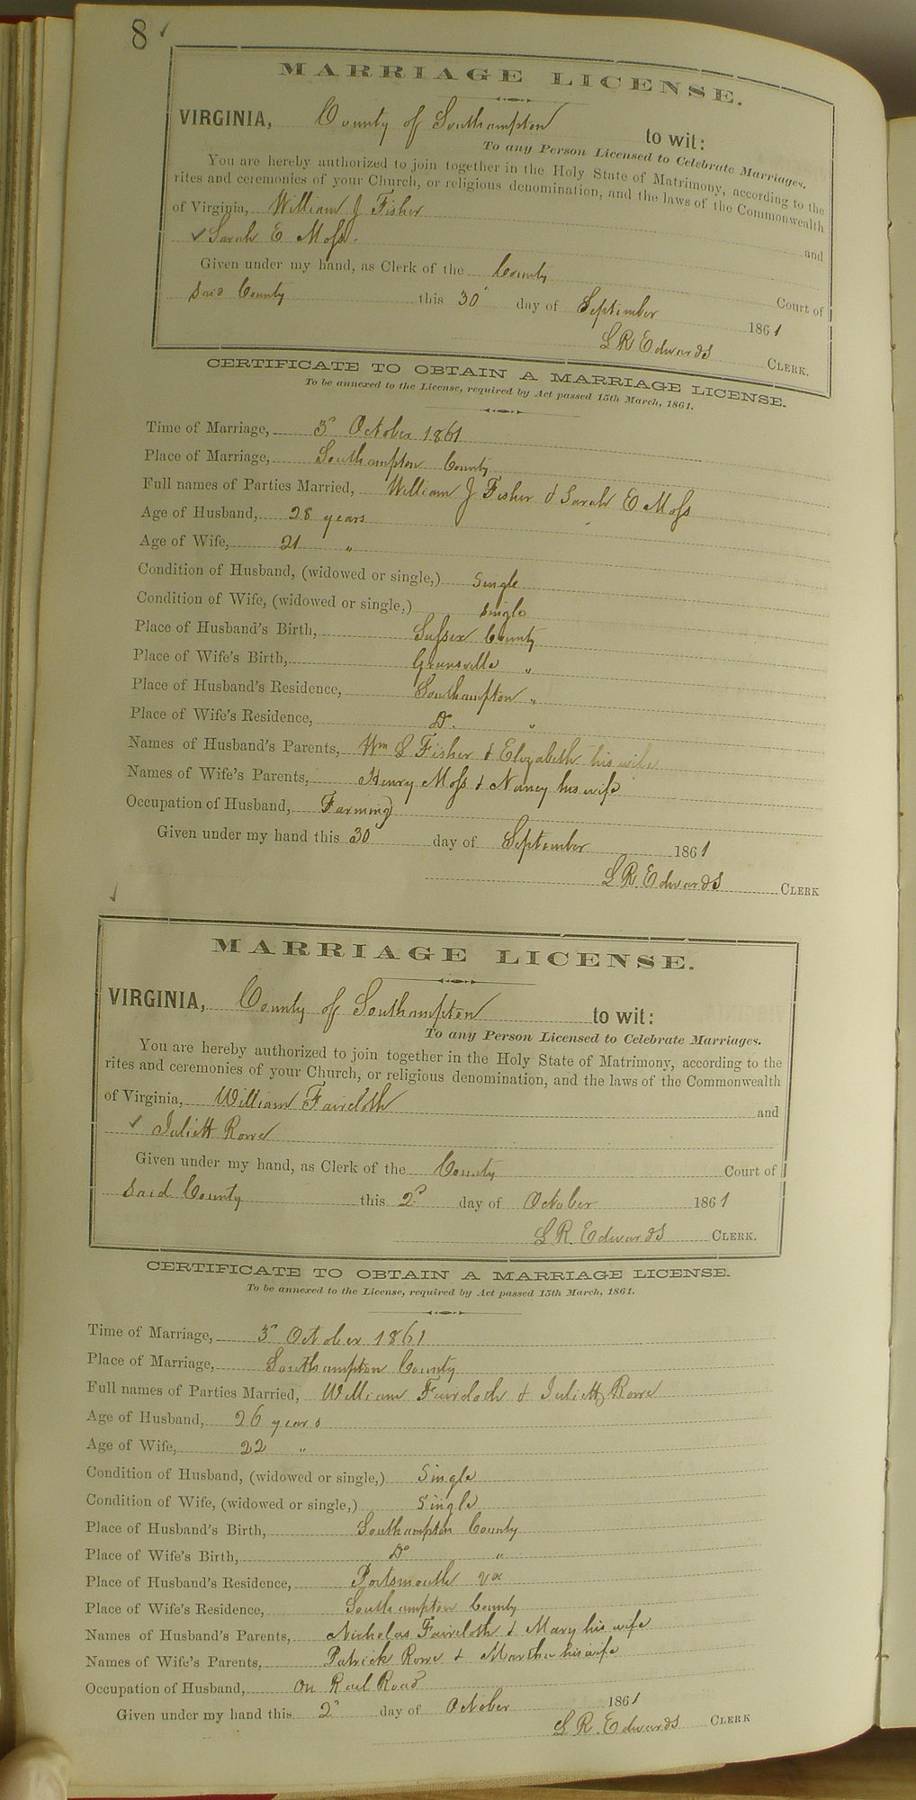 8
MARRIAGE LICENSE.
VIRGINIA, County of Southampton to wit:
To any Person Licensed to Celebrate Marriages.
You are hereby authorized to join together in the Holy State of Matrimony, according to the
rites and ceremonies of your Church, or religious denomination, and the laws of the Commonwealth
of Virginia, William J Fisher and
✓ Sarah E Moss.
Given under my hand, as Clerk of the County Court of
Said County this 30 day of September 1861
L R Edwards CLERK.
CERTIFICATE TO OBTAIN A MARRIAGE LICENSE.
To be annexed to the License, required by Act passed 15th March, 1861.
Time of Marriage, 3d October 1861
Place of Marriage, Southampton County
Full names of Parties Married, William J Fisher & Sarah E Moss
Age of Husband, 28 years
Age of Wife, 21 "
Condition of Husband, (widowed or single,) Single
Condition of Wife, (widowed or single,) Single
Place of Husband's Birth, Sussex County
Place of Wife's Birth, Greensville "
Place of Husband's Residence, Southampton "
Place of Wife's Residence, Do. "
Names of Husband's Parents, Wm S Fisher & Elizabeth his wife
Names of Wife's Parents, Henry Moss & Nancy his wife
Occupation of Husband, Farming
Given under my hand this 30 day of September 1861
L R. Edwards CLERK
MARRIAGE LICENSE.
VIRGINIA, County of Southampton to wit:
To any Person Licensed to Celebrate Marriages.
You are hereby authorized to join together in the Holy State of Matrimony, according to the
rites and ceremonies of your Church, or religious denomination, and the laws of the Commonwealth
of Virginia, William Faircloth and
✓ Juliett Rowe
Given under my hand, as Clerk of the County Court of
Said County this 2d day of October 1861
L R. Edwards CLERK.
CERTIFICATE TO OBTAIN A MARRIAGE LICENSE.
To be annexed to the License, required by Act passed 15th March, 1861.
Time of Marriage, 3d October 1861
Place of Marriage, Southampton County
Full names of Parties Married, William Faircloth & Juliett Rowe
Age of Husband, 26 years
Age of Wife, 22 "
Condition of Husband, (widowed or single,) Single
Condition of Wife, (widowed or single,) Single
Place of Husband's Birth, Southampton County
Place of Wife's Birth, Do "
Place of Husband's Residence, Portsmouth Va
Place of Wife's Residence, Southampton County
Names of Husband's Parents, Nicholas Faircloth & Mary his wife
Names of Wife's Parents, Patrick Rowe & Martha his wife
Occupation of Husband, On Rail Road
Given under my hand this 2d day of October 1861
L R. Edwards CLERK